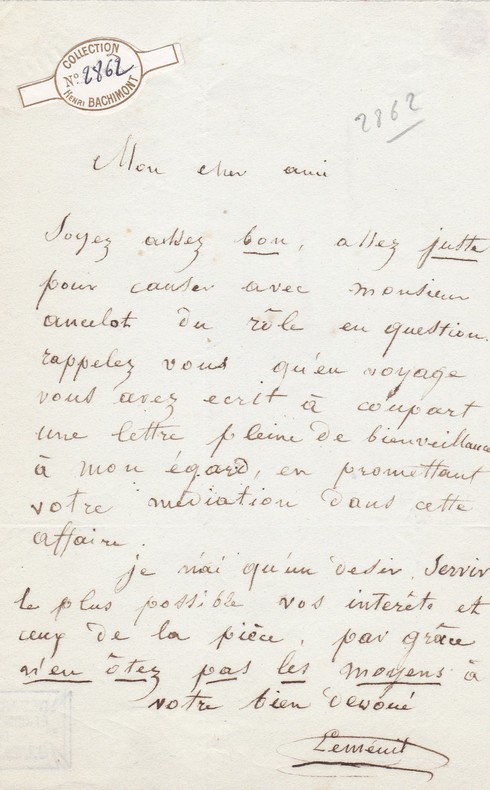 COLLECTION
No. 2862
HENRI BACHIMONT
2862
Mon cher ami
Soyez assez bon, assez juste
pour causer avec monsieur
ancelot du rôle en question.
rappelez vous qu'en voyage
vous avez ecrit à coupart
une lettre pleine de bienveillance
à mon égard, en promettant
votre médiation dans cette
affaire.
je n'ai qu'un desir, servir
le plus possible vos interêts et
ceux de la pièce, par grâce
n'en ôtez pas les moyens à
votre bien devoué
Leménil